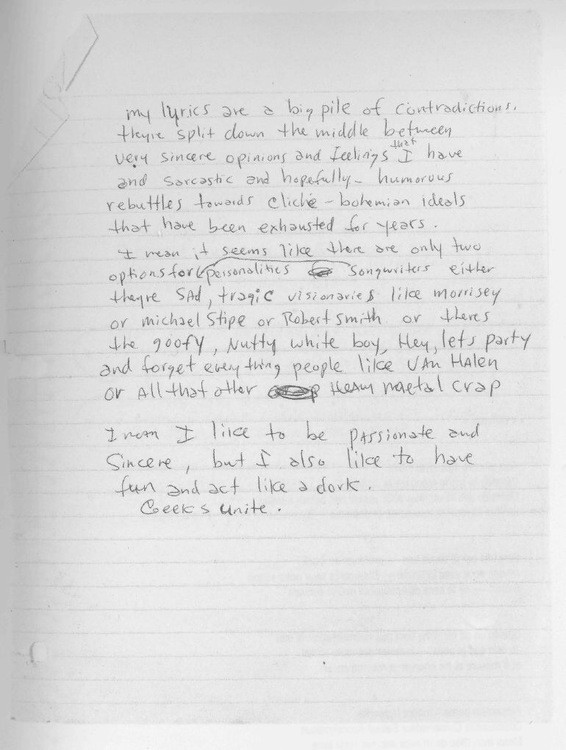 my lyrics are a big pile of contradictions.
theyre split down the middle between
very sincere opinions and feelings that I have
and sarcastic and hopefully - humorous
rebuttles towards cliché - bohemian ideals
that have been exhausted for years.
I mean it seems like there are only two
options for personalities songwriters either
theyre SAd, tragic visionaries like morrisey
or michael Stipe or Robert Smith or theres
the goofy, Nutty white boy, Hey, lets party
and forget everything people like VAn HAlen
or All that other Heavy metal crap
I mean I like to be passionate and
Sincere, but I also like to have
fun and act like a dork.
Geeks unite.